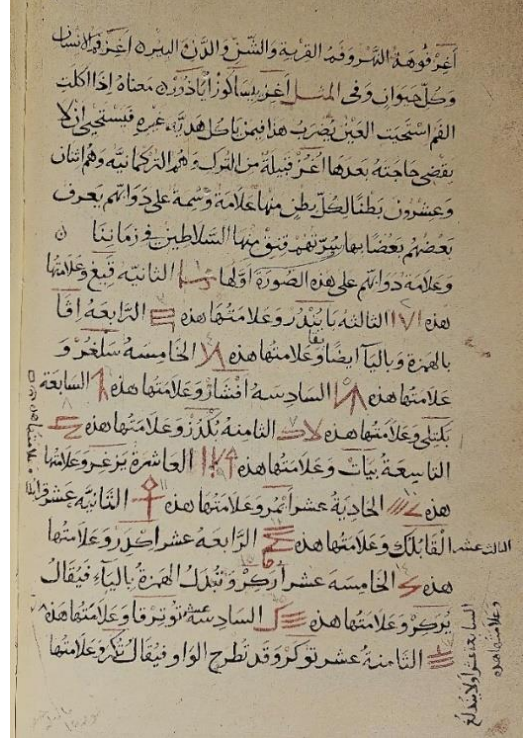 أغز فوهة النهر وفم القربة والشق والدن البئر أغز فم الانسان
وكل حيوان وفى المثل أغز يسا كوز اباذور معناه اذا اكلت
الفم استحيت العين يضرب هذا فيمن ياكل هدية غيره فيستحيى ان لا
يقضى حاجته بعدها اغز قبيلة من الترك وهم التركمانيه وهم اثنان
وعشرون بطنا لكل بطن منها علامة وسمة على دوابهم يعرف
بعضهم بعضا بها سرتهم قنق منها السلاطين فى زماننا
وعلامة دوابهم على هذه الصورة اولها الثانيه قيغ وعلامتها
هذه الثالثه بايندر وعلامتها هذه الرابعه افا
بالهمزة وباليآ ايضا وعلامتها هذه الخامسه سلغر و
علامتها هذه السادسه افشار وعلامتها هذه السابعة
بكتلى وعلامتها هذه الثامنه بكدز وعلامتها هذه
التاسعة بيات وعلامتها هذه العاشرة يزغر وعلامتها
هذه الحادية عشر ايمر وعلامتها هذه الثانيه عشر
الثالث عشر القابلك وعلامتها هذه الرابعه عشر اكدر وعلامتها
هذه الخامسه عشر اركر وتبدل الهمزة بالياء فيقال
يركر وعلامتها هذه السادسه عشر توترقا وعلامتها هذه
الثامنة عشر توكر وقد تطرح الواو فيقال تكر وعلامتها
السابعة عشر اولايندلغ
وعلامتها هذه